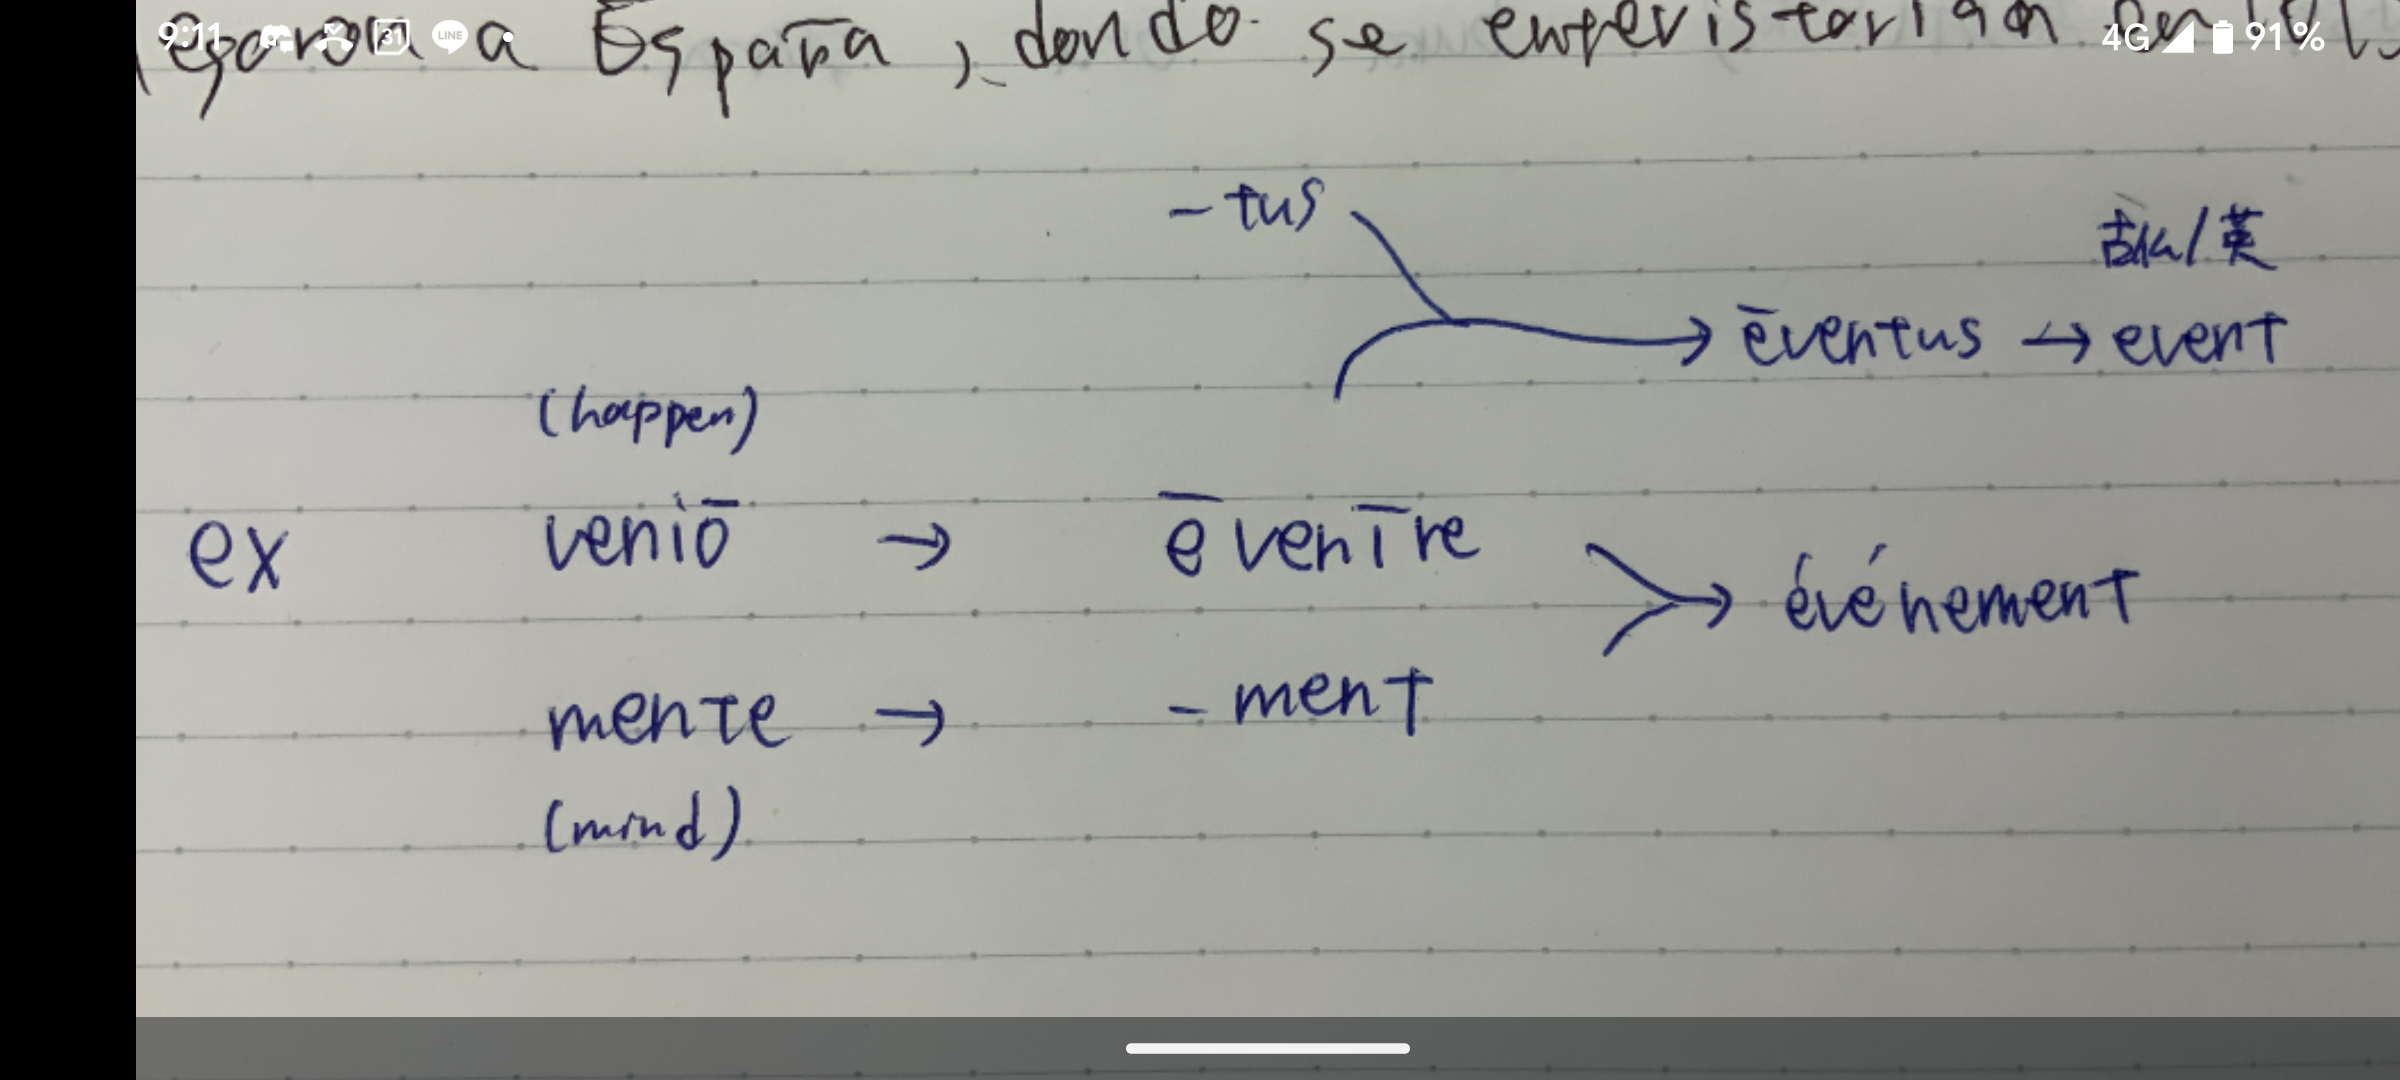 9:11 31 LINE 4G 91%
legaron a España, donde se entrevistarían
-tus
古仏/英
ēventus → event
(happen)
ex veniō → ēvenīre
événement
mente → -ment
(mind)